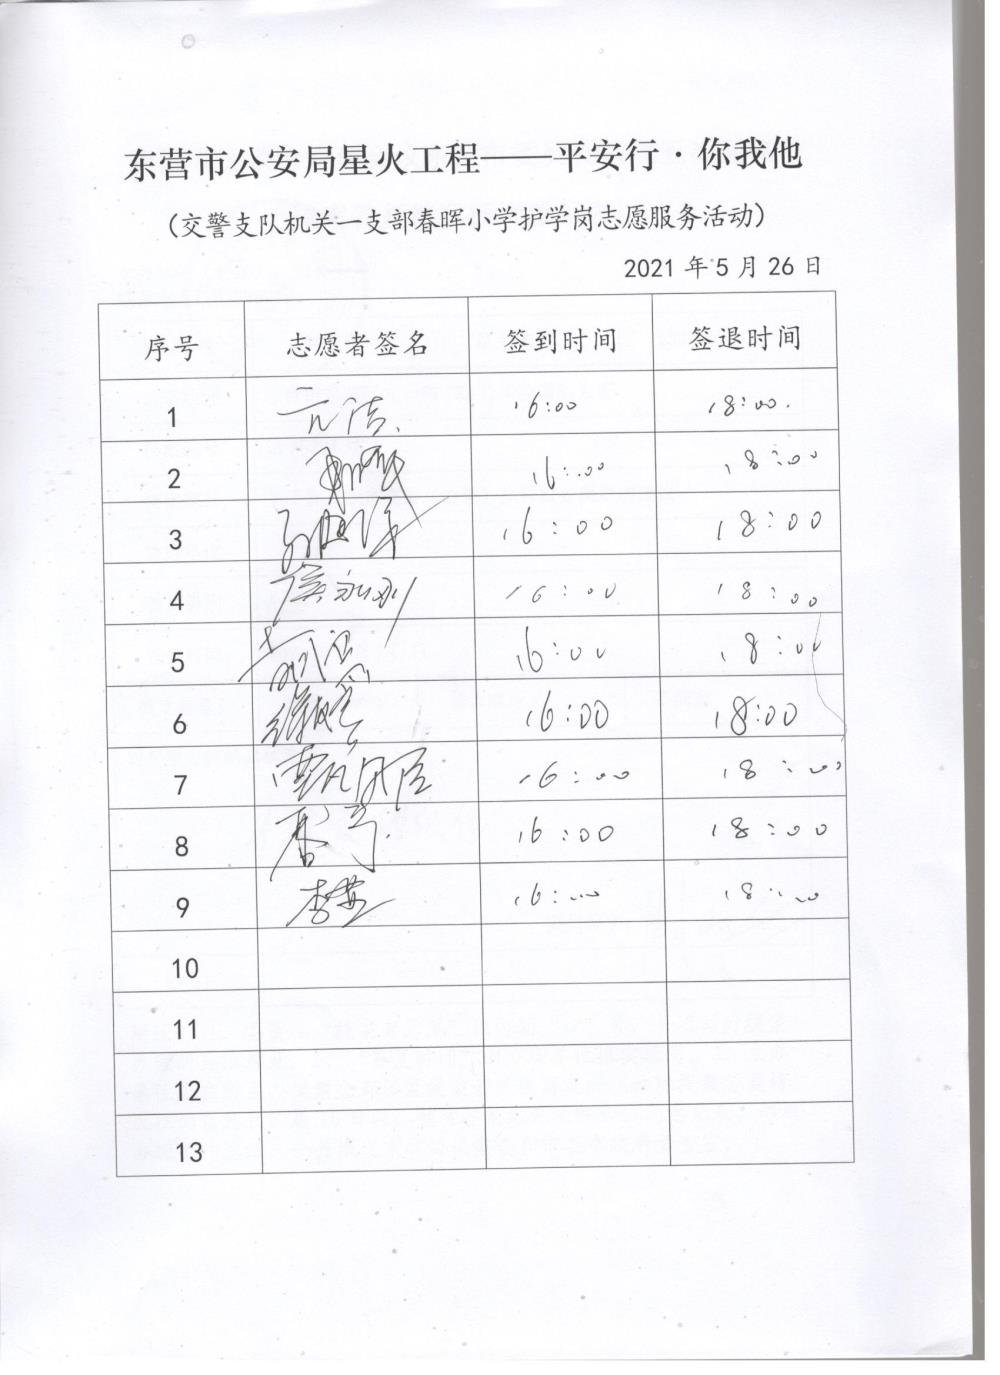 东营市公安局星火工程——平安行·你我他
（交警支队机关一支部春晖小学护学岗志愿服务活动）
2021 年 5 月 26 日
序号 志愿者签名 签到时间 签退时间
1 亓洁. 16:00 18:00.
2 16:00 18:00
3 16:00 18:00
4 侯永刚 16:00 18:00
5 16:00 18:00
6 16:00 18:00
7 16:00 18:00
8 16:00 18:00
9 李燕 16:00 18:00
10
11
12
13